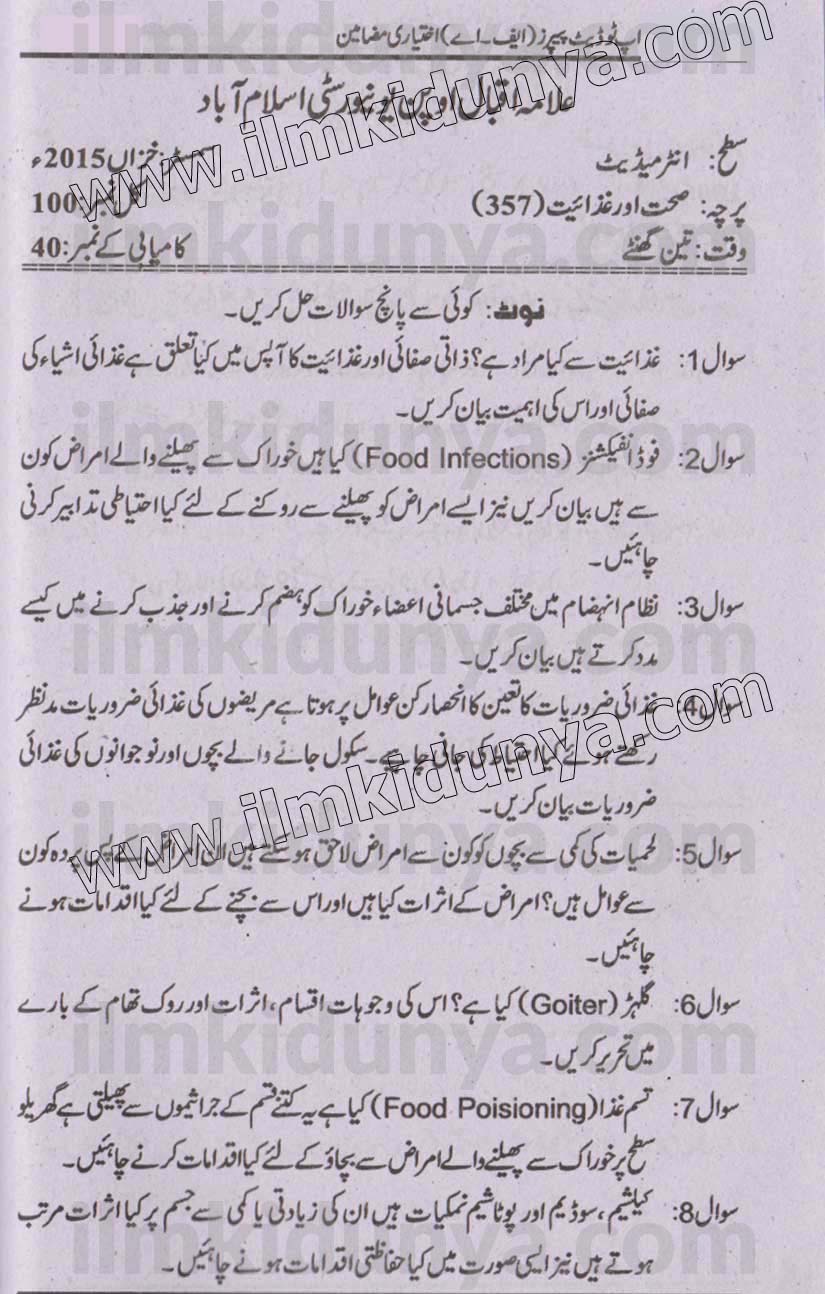 اپ ٹو ڈیٹ پیپرز (ایف۔اے) اختیاری مضامین
علامہ اقبال اوپن یونیورسٹی اسلام آباد
سطح: انٹرمیڈیٹ سمسٹر: خزاں 2015ء
پرچہ: صحت اور غذائیت (357) کل نمبر: 100
وقت: تین گھنٹے کامیابی کے نمبر: 40
نوٹ: کوئی سے پانچ سوالات حل کریں۔
سوال 1: غذائیت سے کیا مراد ہے؟ ذاتی صفائی اور غذائیت کا آپس میں کیا تعلق ہے غذائی اشیاء کی
صفائی اور اس کی اہمیت بیان کریں۔
سوال 2: فوڈ انفیکشنز (Food Infections) کیا ہیں خوراک سے پھیلنے والے امراض کون
سے ہیں بیان کریں نیز ایسے امراض کو پھیلنے سے روکنے کے لئے کیا احتیاطی تدابیر کرنی
چاہئیں۔
سوال 3: نظام انہضام میں مختلف جسمانی اعضاء خوراک کو ہضم کرنے اور جذب کرنے میں کیسے
مدد کرتے ہیں بیان کریں۔
سوال 4: غذائی ضروریات کا تعین کا انحصار کن عوامل پر ہوتا ہے مریضوں کی غذائی ضروریات مدنظر
رکھتے ہوئے کیا احتیاط کی جانی چاہیے۔ سکول جانے والے بچوں اور نوجوانوں کی غذائی
ضروریات بیان کریں۔
سوال 5: لحمیات کی کمی سے بچوں کو کون سے امراض لاحق ہو سکتے ہیں ان امراض کے پس پردہ کون
سے عوامل ہیں؟ امراض کے اثرات کیا ہیں اور اس سے بچنے کے لئے کیا اقدامات ہونے
چاہئیں۔
سوال 6: گلہڑ (Goiter) کیا ہے؟ اس کی وجوہات اقسام، اثرات اور روک تھام کے بارے
میں تحریر کریں۔
سوال 7: تسم غذا (Food Poisioning) کیا ہے یہ کتنے قسم کے جراثیموں سے پھیلتی ہے گھریلو
سطح پر خوراک سے پھیلنے والے امراض سے بچاؤ کے لئے کیا اقدامات کرنے چاہئیں۔
سوال 8: کیلشیم، سوڈیم اور پوٹاشیم نمکیات ہیں ان کی زیادتی یا کمی سے جسم پر کیا اثرات مرتب
ہوتے ہیں نیز ایسی صورت میں کیا حفاظتی اقدامات ہونے چاہئیں۔
www.ilmkidunya.com
www.ilmkidunya.com
ilmkidunya.com
ilmkidunya.com
ilmkidunya.com
ilmkidunya.com
ilmkidunya.com
ilmkidunya.com
ilmkidunya.com
ilmkidunya.com